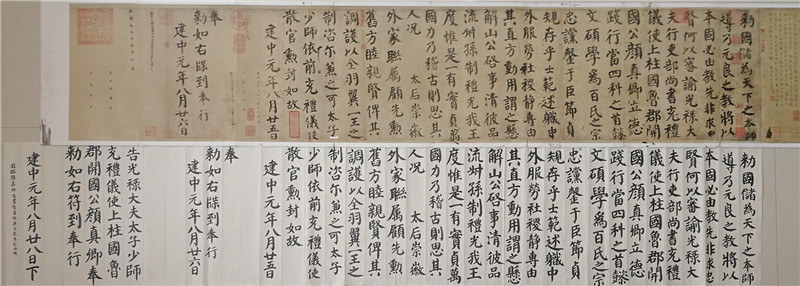 勑國儲為天下之本師
導乃元良之教將以
本固必由教先非求忠
賢何以審諭光祿大
夫行吏部尚書充禮
儀使上柱國魯郡開
國公顏真卿立德
踐行當四科之首懿
文碩學為百氏之宗
忠讜罄于臣節貞
規存乎士範述職中
外服勞社稷靜專由
其直方動用謂之懸
解山公啓事清彼品
流叔孫制禮光我王
度惟是一有實貞萬
國力乃稽古則思其
人況 太后崇徽
外家聯屬顧先勳
舊方睦親賢俾其
調護以全羽翼一王之
制咨尔兼之可太子
少師依前充禮儀使
散官勳封如故
建中元年八月廿五日
奉
勑如右牒到奉行
建中元年八月廿六日
勑國儲為天下之本師
導乃元良之教將以
本固必由教先非求忠
賢何以審諭光祿大
夫行吏部尚書充禮
儀使上柱國魯郡開
國公顏真卿立德
踐行當四科之首懿
文碩學為百氏之宗
忠讜罄于臣節貞
規存乎士範述職中
外服勞社稷靜專由
其直方動用謂之懸
解山公啓事清彼品
流叔孫制禮光我王
度惟是一有實貞萬
國力乃稽古則思其
人況 太后崇徽
外家聯屬顧先勳
舊方睦親賢俾其
調護以全羽翼一王之
制咨尔兼之可太子
少師依前充禮儀使
散官勳封如故
建中元年八月廿五日
奉
勑如右牒到奉行
建中元年八月廿六日
告光祿大夫太子少師
充禮儀使上柱國魯
郡開國公顏真卿奉
勑如右符到奉行
建中元年八月廿八日下